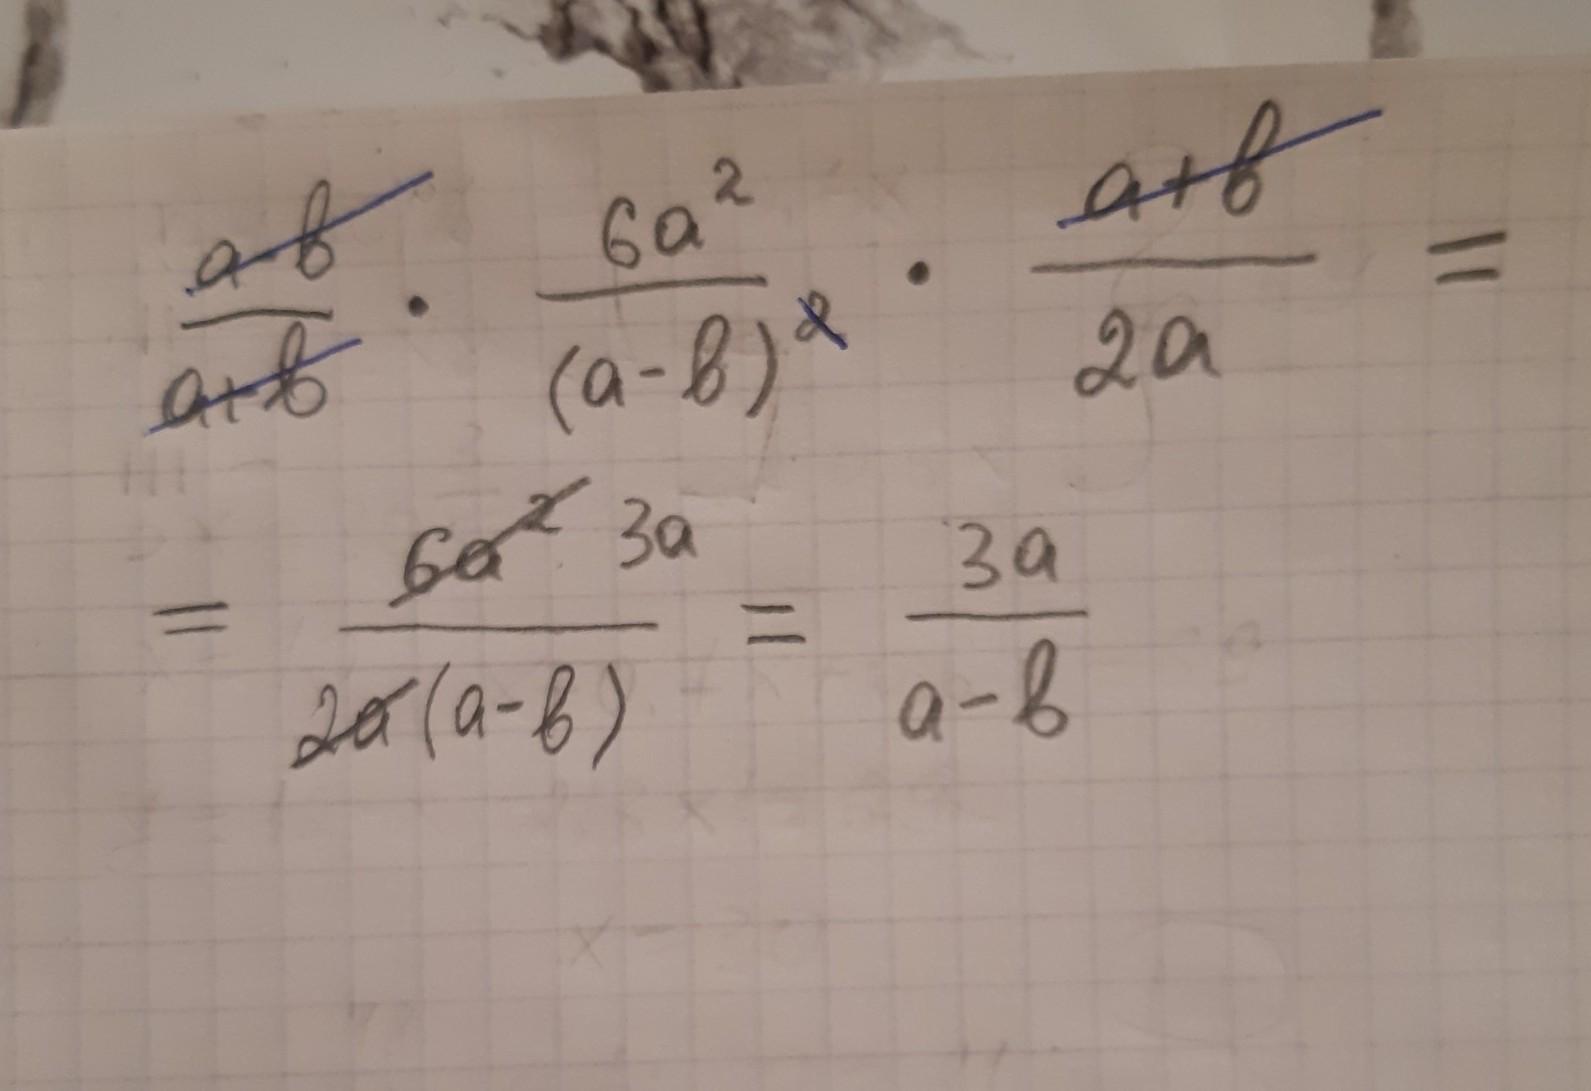 (a-b)/(a+b) · 6a²/(a-b)² · (a+b)/2a =
= 6a² 3a/2a(a-b) = 3a/(a-b)